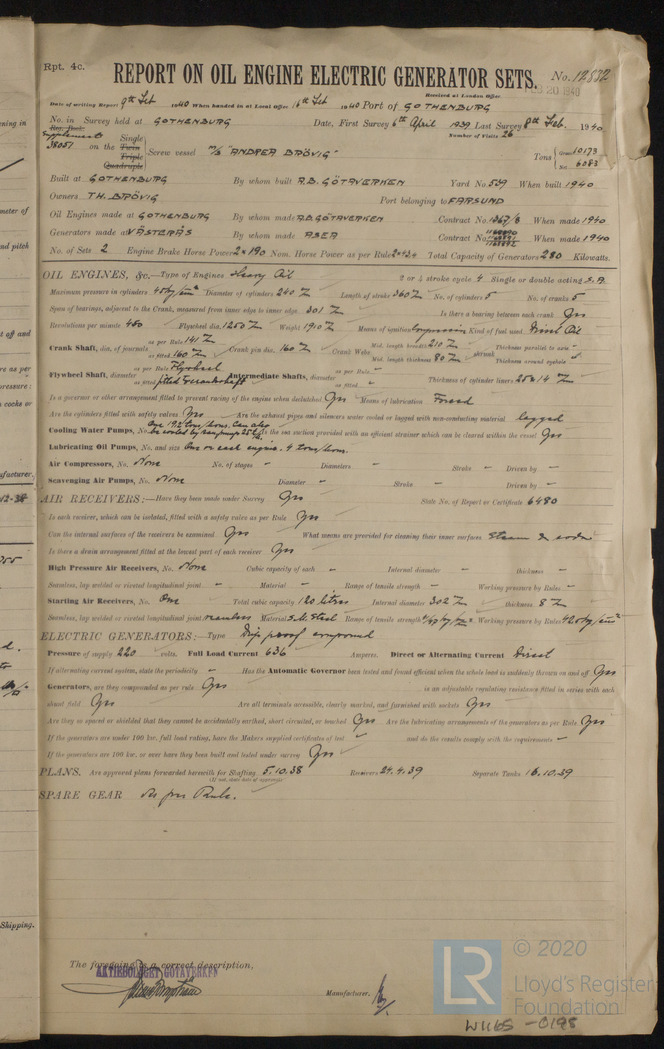 Rpt. 4c.
REPORT ON OIL ENGINE ELECTRIC GENERATOR SETS.
No. 12832
Received at London Office
FEB 20 1940
Date of writing Report 9th Feb 1940 When handed in at Local Office 16th Feb 1940 Port of GOTHENBURG
No. in Survey held at GOTHENBURG Date, First Survey 6th April 1939 Last Survey 8th Feb. 1940
Reg. Book.
Number of Visits 26
Supplement
38051 on the Single Twin Triple Quadruple Screw vessel M/S "ANDREA BRÖVIG" Tons Gross 10173 Net 6083
Built at GOTHENBURG By whom built A.B. GÖTAVERKEN Yard No. 539 When built 1940
Owners TH. BRÖVIG Port belonging to FARSUND
Oil Engines made at GOTHENBURG By whom made A.B. GÖTAVERKEN Contract No. When made 1940
Generators made at VÄSTERÅS By whom made ASEA Contract No. When made 1940
No. of Sets 2 Engine Brake Horse Power 2x190 Nom. Horse Power as per Rule Total Capacity of Generators 280 Kilowatts.
OIL ENGINES, &c.—Type of Engines Heavy Oil 2 or 4 stroke cycle 4 Single or double acting S.A.
Maximum pressure in cylinders 45 kg/cm² Diameter of cylinders 240 Length of stroke 360 No. of cylinders 5 No. of cranks 5
Span of bearings, adjacent to the Crank, measured from inner edge to inner edge 301 Is there a bearing between each crank Yes
Revolutions per minute 450 Flywheel dia. 1250 Weight 1910 Means of ignition Compression Kind of fuel used Diesel Oil
Crank Shaft, dia. of journals as per Rule 141 as fitted 160 Crank pin dia. 160 Crank Webs Mid. length breadth 210 Mid. length thickness 80 shrunk Thickness parallel to axis - Thickness around eyehole -
Flywheel Shaft, diameter as per Rule Flywheel as fitted fitted to crankshaft Intermediate Shafts, diameter as per Rule - as fitted - Thickness of cylinder liners
Is a governor or other arrangement fitted to prevent racing of the engine when declutched Yes Means of lubrication Forced
Are the cylinders fitted with safety valves Yes Are the exhaust pipes and silencers water cooled or lagged with non-conducting material lagged
Cooling Water Pumps, No. One 19.2 tons/hour. Can also be cooled by Is the sea suction provided with an efficient strainer which can be cleared within the vessel Yes
Lubricating Oil Pumps, No. and size One on each engine. 4 tons/hour.
Air Compressors, No. None No. of stages - Diameters - Stroke - Driven by -
Scavenging Air Pumps, No. None Diameter - Stroke - Driven by -
AIR RECEIVERS:—Have they been made under Survey Yes State No. of Report or Certificate 6480
Is each receiver, which can be isolated, fitted with a safety valve as per Rule Yes
Can the internal surfaces of the receivers be examined Yes What means are provided for cleaning their inner surfaces Steam & soda
Is there a drain arrangement fitted at the lowest part of each receiver Yes
High Pressure Air Receivers, No. None Cubic capacity of each - Internal diameter - thickness -
Seamless, lap welded or riveted longitudinal joint - Material - Range of tensile strength - Working pressure by Rules -
Starting Air Receivers, No. One Total cubic capacity 120 litres Internal diameter 302 thickness 8
Seamless, lap welded or riveted longitudinal joint seamless Material S.M. Steel Range of tensile strength Working pressure by Rules
ELECTRIC GENERATORS:—Type Drip proof compound
Pressure of supply 220 volts. Full Load Current 636 Amperes. Direct or Alternating Current Direct
If alternating current system, state the periodicity - Has the Automatic Governor been tested and found efficient when the whole load is suddenly thrown on and off Yes
Generators, are they compounded as per rule Yes is an adjustable regulating resistance fitted in series with each
shunt field Yes Are all terminals accessible, clearly marked, and furnished with sockets Yes
Are they so spaced or shielded that they cannot be accidentally earthed, short circuited, or touched Yes Are the lubricating arrangements of the generators as per Rule Yes
If the generators are under 100 kw. full load rating, have the Makers supplied certificates of test - and do the results comply with the requirements -
If the generators are 100 kw. or over have they been built and tested under survey Yes
PLANS. Are approved plans forwarded herewith for Shafting 5.10.38 Receivers 24.4.39 Separate Tanks 16.10.39
(If not, state date of approval)
SPARE GEAR As per Rule.
The foregoing is a correct description,
AKTIEBOLAGET GÖTAVERKEN
Manufacturer.
LR © 2020
Lloyd's Register
Foundation
W1165-0198